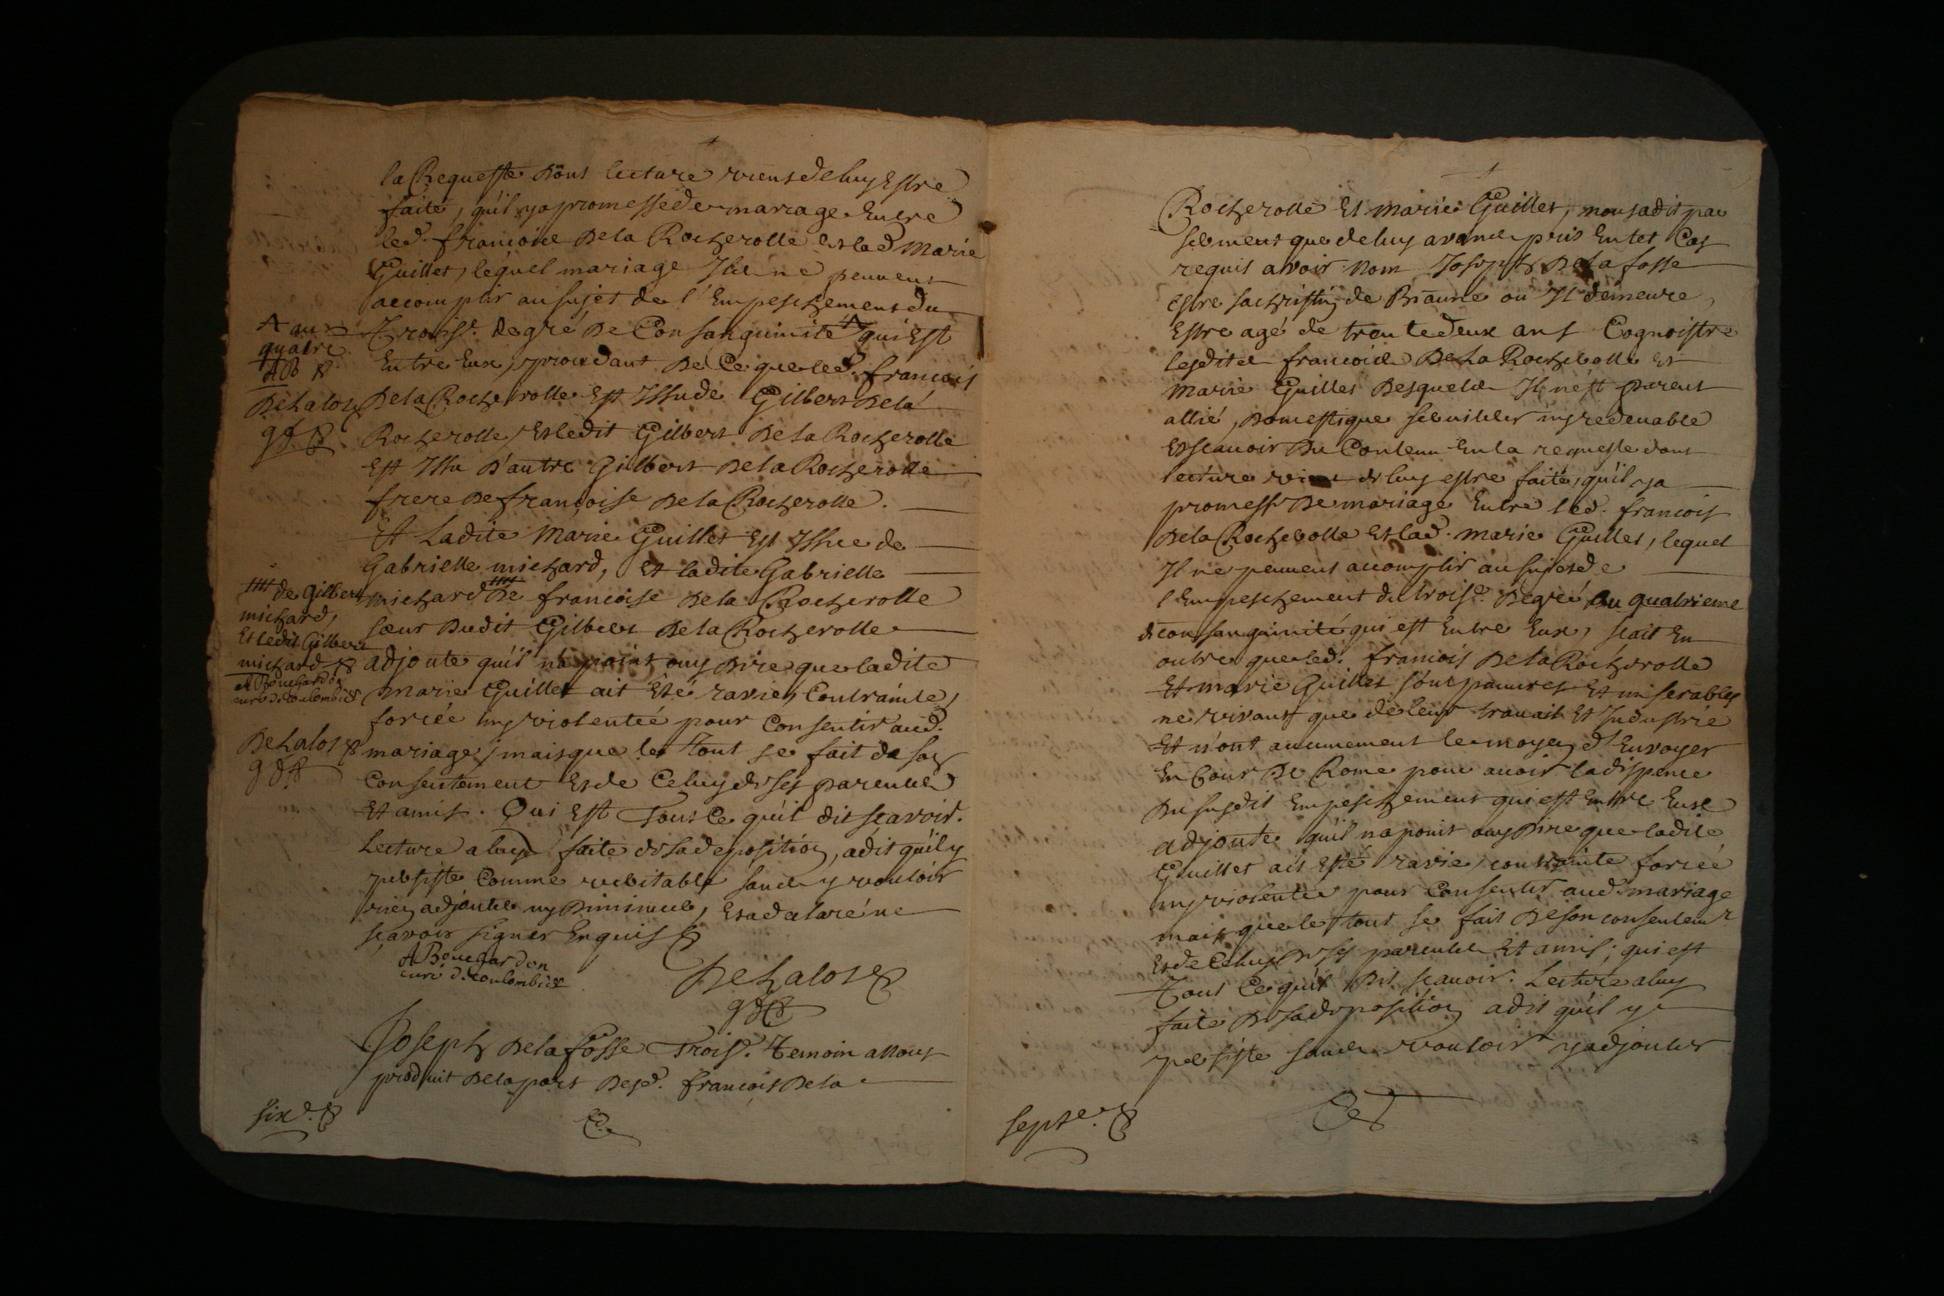 la Requeste dont lecture vient de luy Estre
faite, qu'il y a promesse de mariage Entre
led. francoise De la Rocherolle et lad Marie
Guillet, lequel mariage Ils ne peuvent
accomplir au sujet de l'Empeschement du
Troisr. degré De Consanguinité A qui Est
Entre Eux, procedant De Ce que led. francois
De la Rocherolle Est Issu de Gilbert De la
Rocherolle, Et ledit Gilbert De la Rocherolle
Est Issu D'autre Gilbert De la Rocherolle
frere De francoise De la Rocherolle.
Et Ladite Marie Guillet Est Issue de
Gabrielle michard, Et ladite Gabrielle
michard De francoise De la Rocherolle
sœur Dudit Gilbert De la Rocherolle
adjoute qu'il n'a point ouy Dire que ladite
Marie Guillet ait Esté ravie, Contrainte,
forcée ny violentée pour Consentir aud.
mariage, mais que le tout se fait de son
Consentement Et de Celuy de ses parents
Et amis. Qui Est Tout Ce qu'il dit scavoir.
Lecture a luy faite de sa deposition, a dit qu'il y
persiste Comme veritable sans y vouloir
rien adjouter ny Diminuer, Et a declaré ne
scavoir signer Enquis
A Bouchardon
curé de coulombier
DeLalos
Joseph De la fosse Trois. Temoin a Nous
produit De la part Desd. francois De la
six.
A au
quatre
AB
DeLalos
#### de Gilbert
michard,
Et ledit Gilbert
michard
A Bouchardon
curé de coulombier
DeLalos
Rocherolle Et Marie Guillet, nous a dit par
serment que de luy avons pris En tel Cas
requis avoir Nom Joseph De la fosse
estre sachristin de Biaune où Il demeure,
Estre agé de trente deux ans Cognoistre
lesdits francois De La Rocherolle Et
Marie Guillet Desquels Il n'est parent
allié, Domestique serviteur ny redevable
Et scavoir Du Contenu En la requeste dont
lecture vient de luy estre faite, qu'il y a
promesse De mariage Entre led. francois
De la Rocherolle Et lad. Marie Guillet, lequel
Il ne peuvent accomplir au sujet de
l'Empeschement du trois. Degré au quatrieme
de consanguinité qui est Entre Eux, scait En
outre que led. francois De la Rocherolle
Et Marie Guillet sont pauvres Et miserables
ne vivant que de leur travail Et Industrie
Et n'ont aucunement le moyen d'Envoyer
En Cour De Rome pour avoir la dispence
Du susdit Empeschement qui est Entre Eux
adjoute qu'il n'a point ouy Dire que ladite
Guillet ait Esté ravie, contrainte forcée
ny violentée pour Consentir aud. mariage
mais que le tout se fait De son consentemt
Et de Celuy De ses parents Et amis; qui est
Tout Ce qu'il Dit scavoir. Lecture a luy
faite De sa deposition a dit qu'il y
persiste sans vouloir y adjouter
septe.